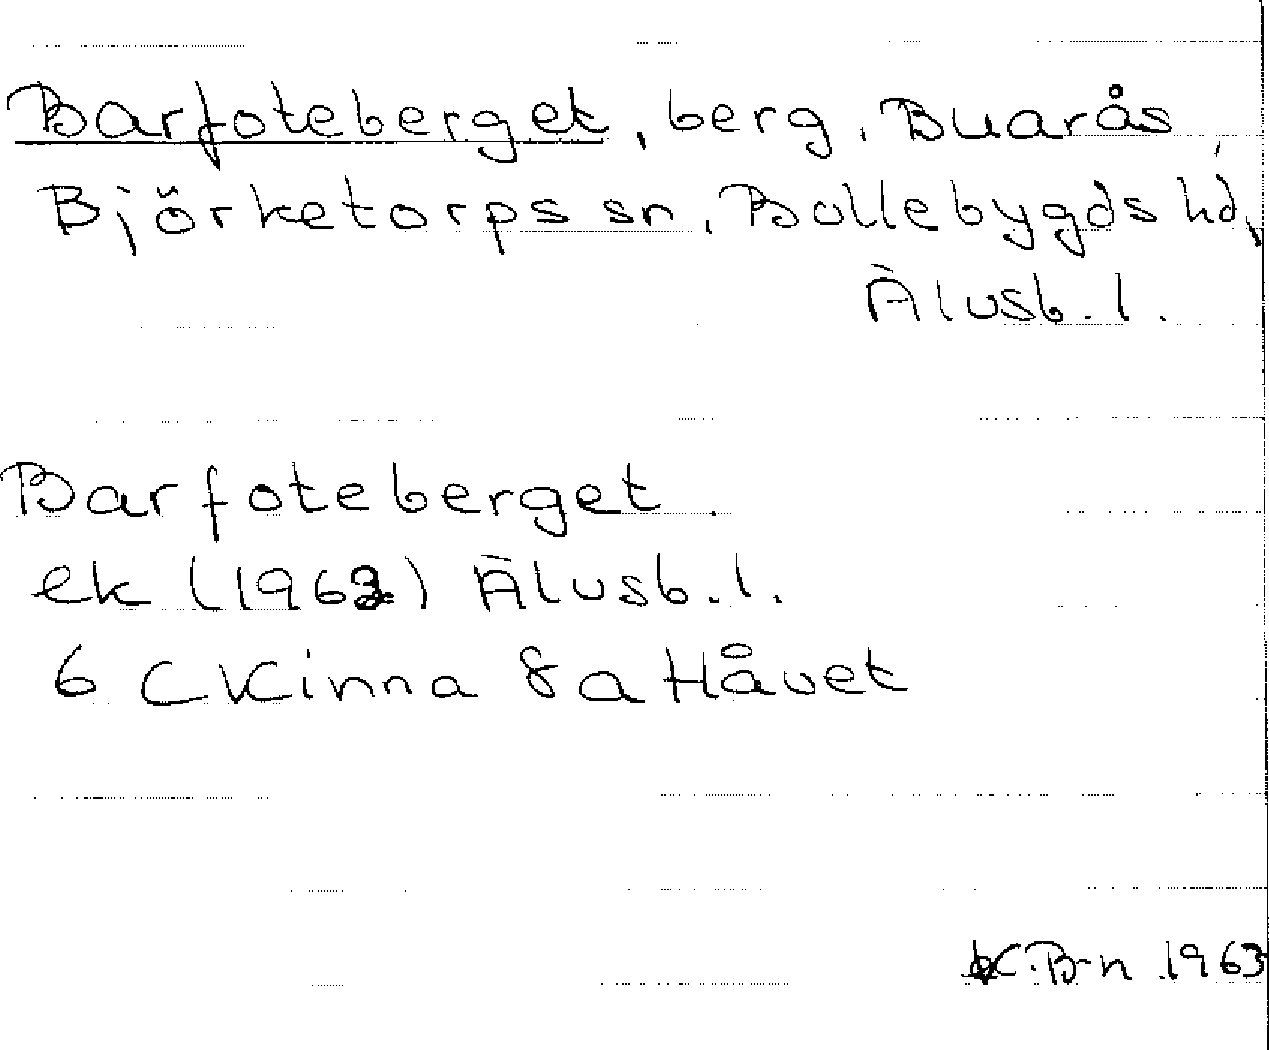 Barfoteberget, berg, Buarås,
Björketorps sn, Bollebygds hd,
Älvsb. l.
Barfoteberget.
ek (1962) Älvsb. l.
6 C Kinna 8 a Håvet
K.B-n 1963